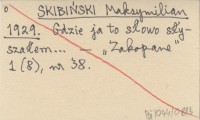 o SKIBIŃSKI Maksymilian
1929. Gdzie ja to słowo sły-
szałem... — „Zakopane"
1 (8), nr 38.